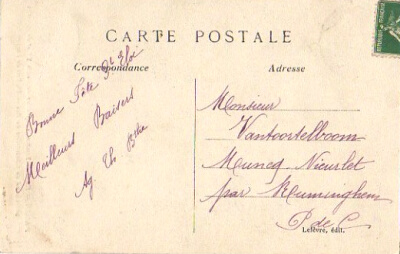 CARTE POSTALE
Correspondance
Adresse
Bonne Fête St Eloi
Meilleurs Baisers
Ag. Th. Btke
Monsieur
Vantoortelboom
Muncq Nieurlet
par Ruminghem
P de C
Lefèvre, édit.